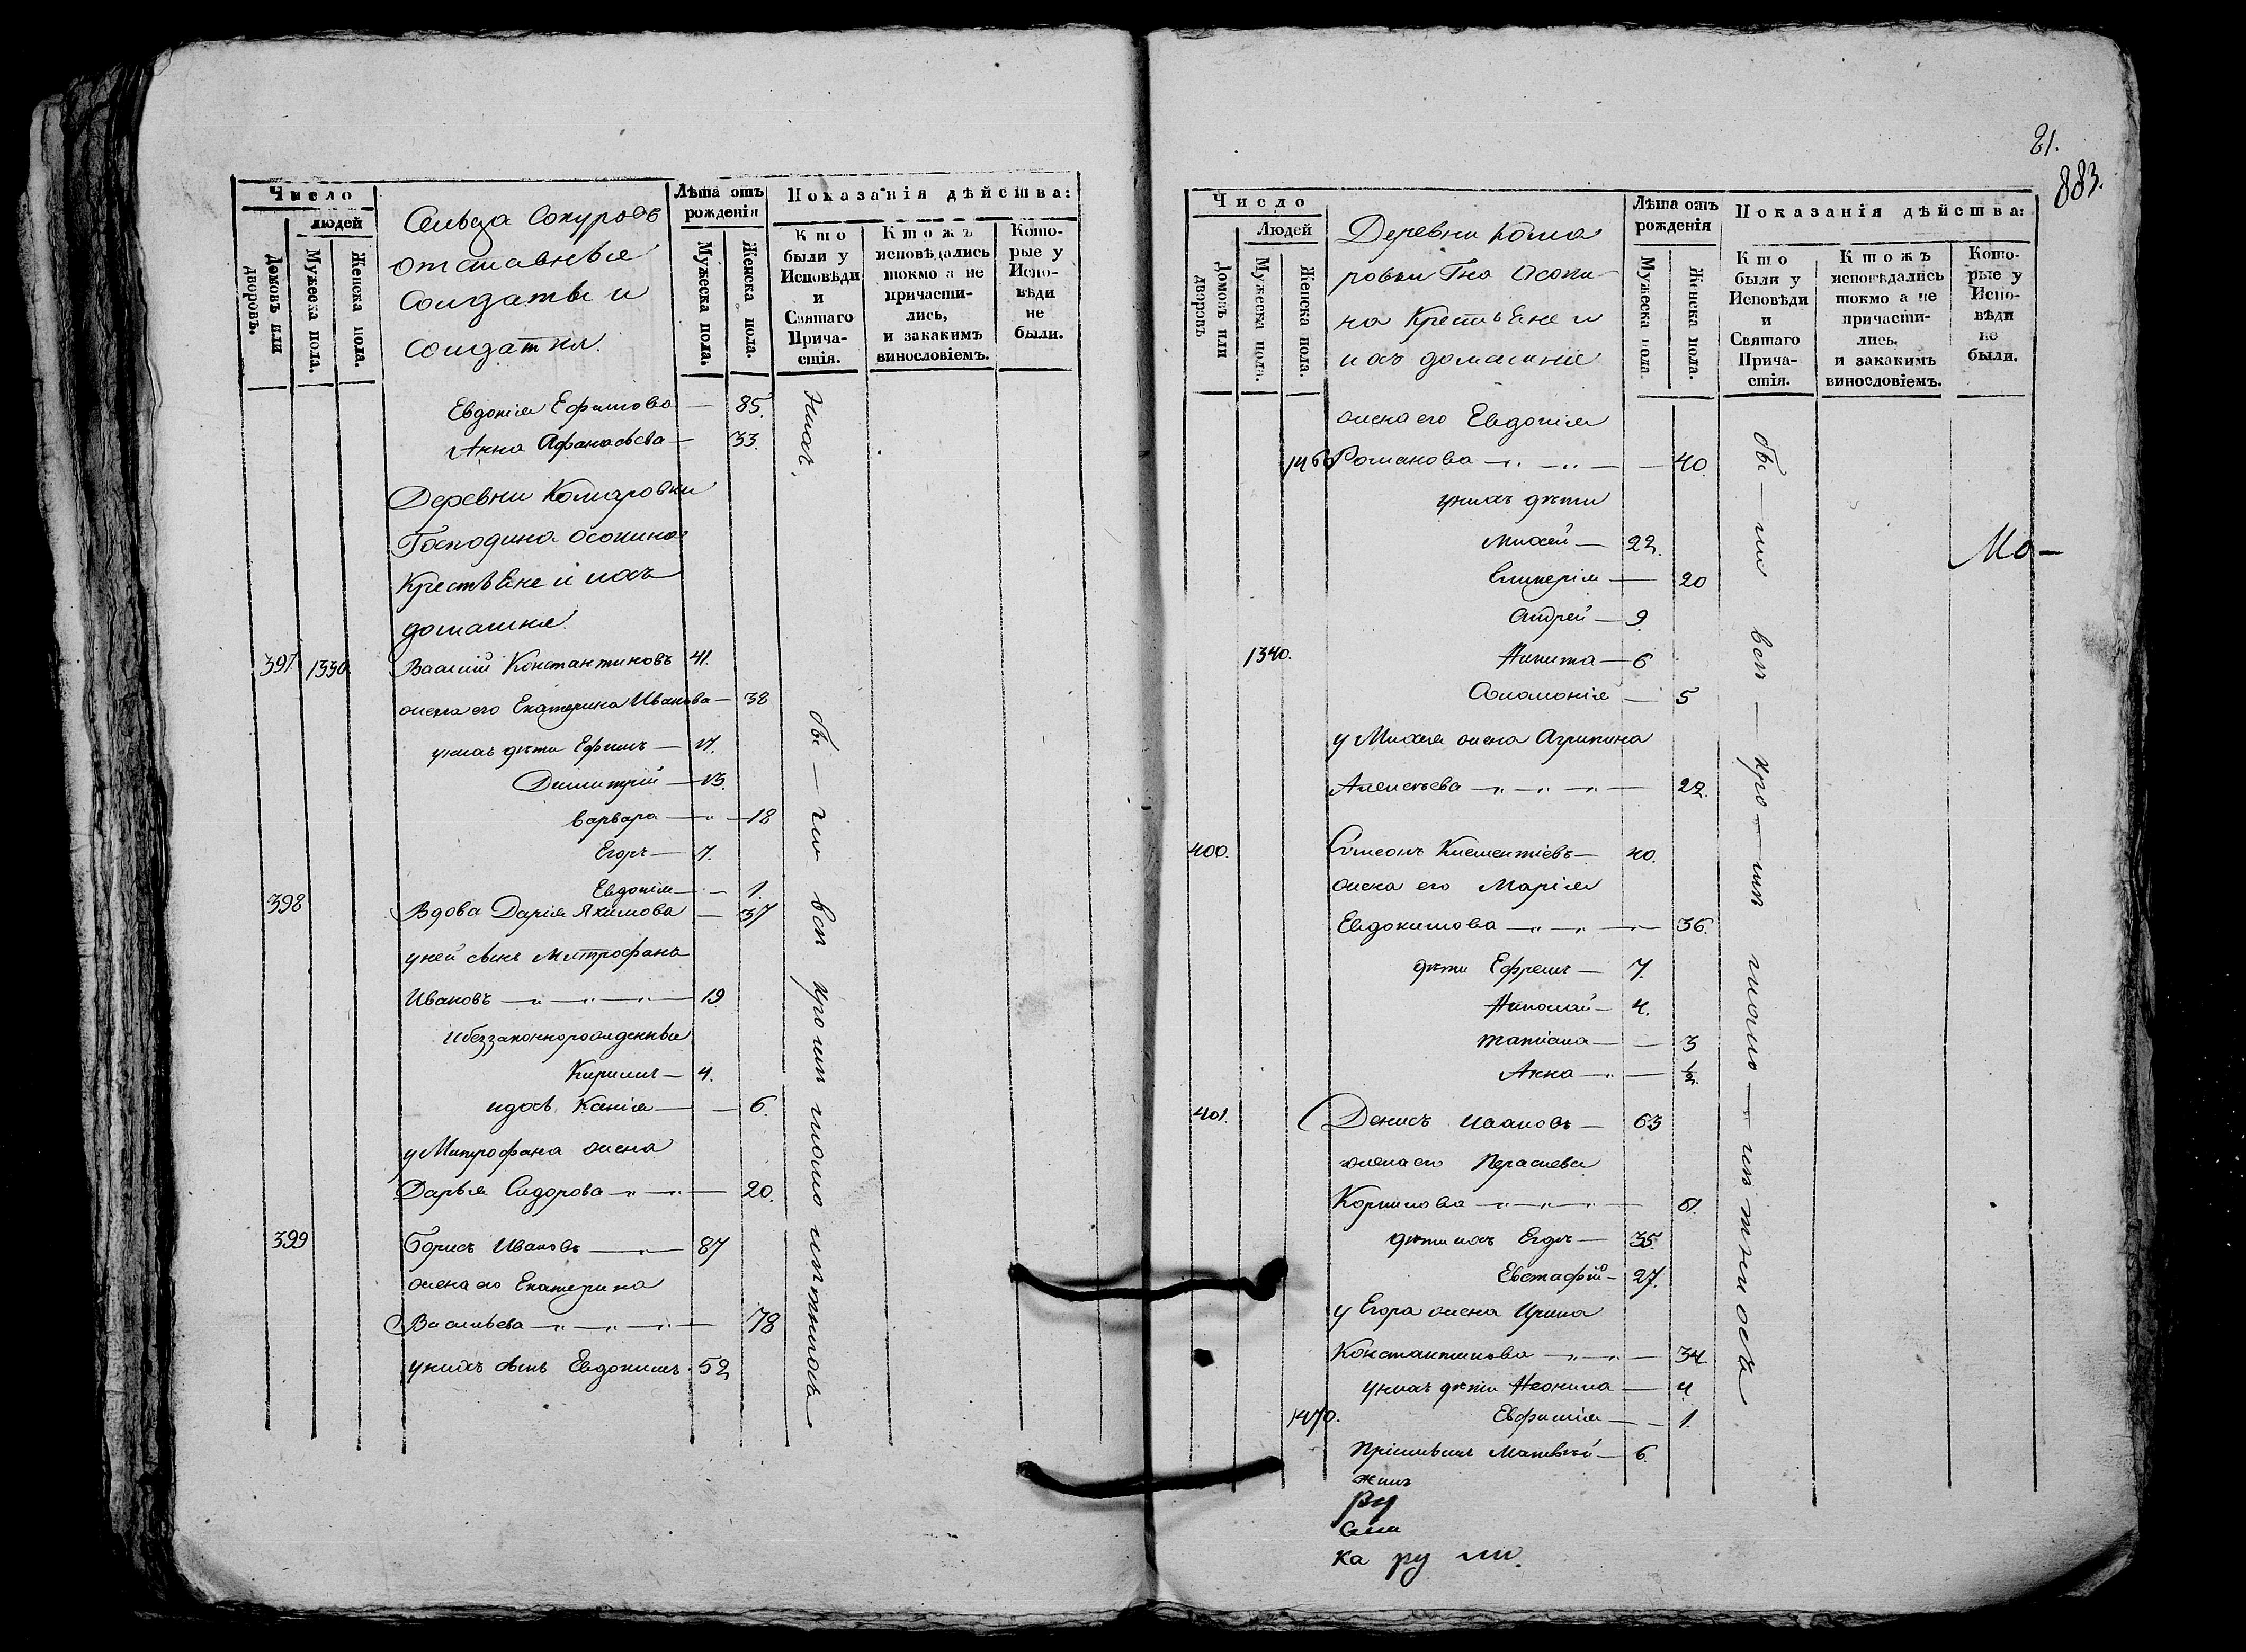 Число
людей
Домовъ или дворовъ.
Мужеска пола.
Женска пола.
Сельца Сокуровъ
отставные
Солдаты и
солдатки.
Лѣта отъ рожденія
Мужеска пола.
Женска пола.
Показанія дѣйства:
Кто были у Исповѣди и Святаго Причастія.
Ктожъ исповѣдались токмо а не причастились, и закакимъ винословіемъ.
Которые у Исповѣди не были.
Евдокія Ефимова — 85.
Анна Афанасьева — 33.
Деревни Комаровки
Господина Осокина
Крестьяне и ихъ
домашніе
397 1330. Василій Константиновъ 41.
жена его Екатерина Иванова — 38
у нихъ дѣти Ефимъ — 17.
Димитрій — 13.
Варвара — 18
Егоръ — 7.
Евдокія — 1.
398 Вдова Дарія Якимова — 37
у ней сынъ Митрофанъ
Ивановъ — 19
и беззаконнорожденные
Кирилъ — 4.
Ксенія — 6.
у Митрофана жена
Дарья Сидорова — 20.
399 Борисъ Ивановъ — 87
жена его Екатерина
Васильева — 78
у нихъ сынъ Евдокимъ 52
бы — ли всѣ кромѣ мало лѣтныхъ
21.
883.
Число
Людей
Домовъ или дворовъ
Мужеска пола.
Женска пола.
Деревни Кома
ровки Гна Осоки-
на Крестьяне и
ихъ домашніе
Лѣта отъ рожденія
Мужеска пола.
Женска пола.
Показанія дѣйства:
Кто были у Исповѣди и Святаго Причастія.
Ктожъ исповѣдались токмо а не причастились. и закакимъ винословіемъ.
Которые у Исповѣди не были.
жена его Евдокія
1460 Романова — 40.
у нихъ дѣти
Михей — 22.
Гликерія — 20
Андрей — 9.
1340. Никита — 6
Соломонія — 5
у Михея жена Агрипина
Алексѣева — 22.
400. Симеонъ Климентіевъ — 40.
жена его Марія
Евдокимова — 36.
дѣти Ефремъ — 7.
Николай — 4.
Татіана — 3
Анна — ½.
401. Денисъ Ивановъ — 63
жена его
Корнилова — 61.
дѣти ихъ Егоръ — 35.
Евстафій — 27.
у Егора жена Ирина
Константинова — 34.
у нихъ дѣти Неонила — 4
1470. Евфимія — 1.
Матвѣй — 6.
бы — ли всѣ — кро — мѣ мало — лѣтныхъ
Мо —
ру
ка ру ли.